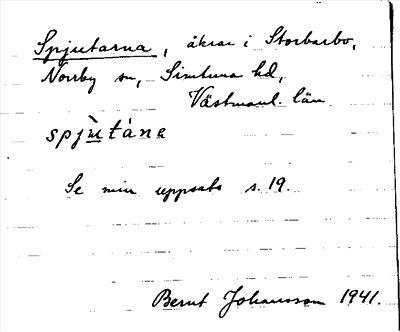 Spjutarna, åkrar i Storbarbo,
Norrby sn, Simtuna hd,
Västmanl. län
spjù̲tána
Se min uppsats s. 19.
Bernt Johansson 1941.